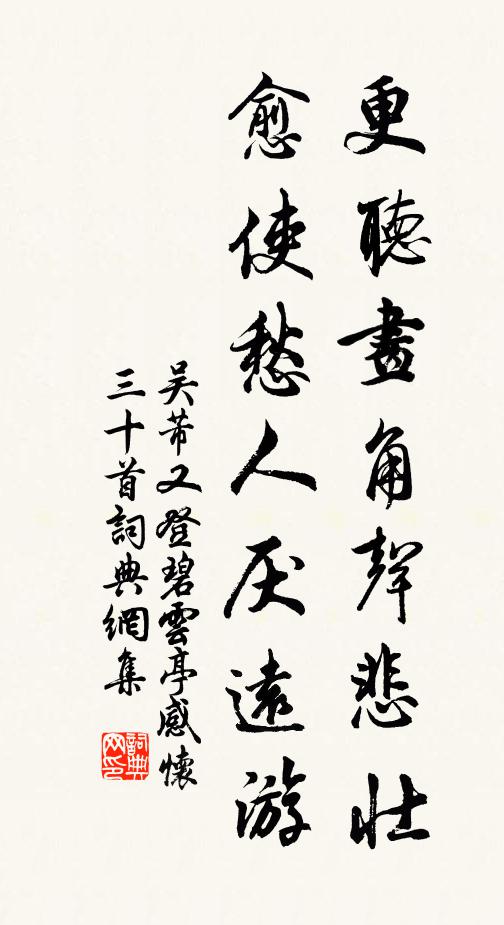 更聽畫角聲悲壯
愈使愁人厌遠游
吴芾又登碧雲亭感懷
三十首詞典網集
詞典
网印